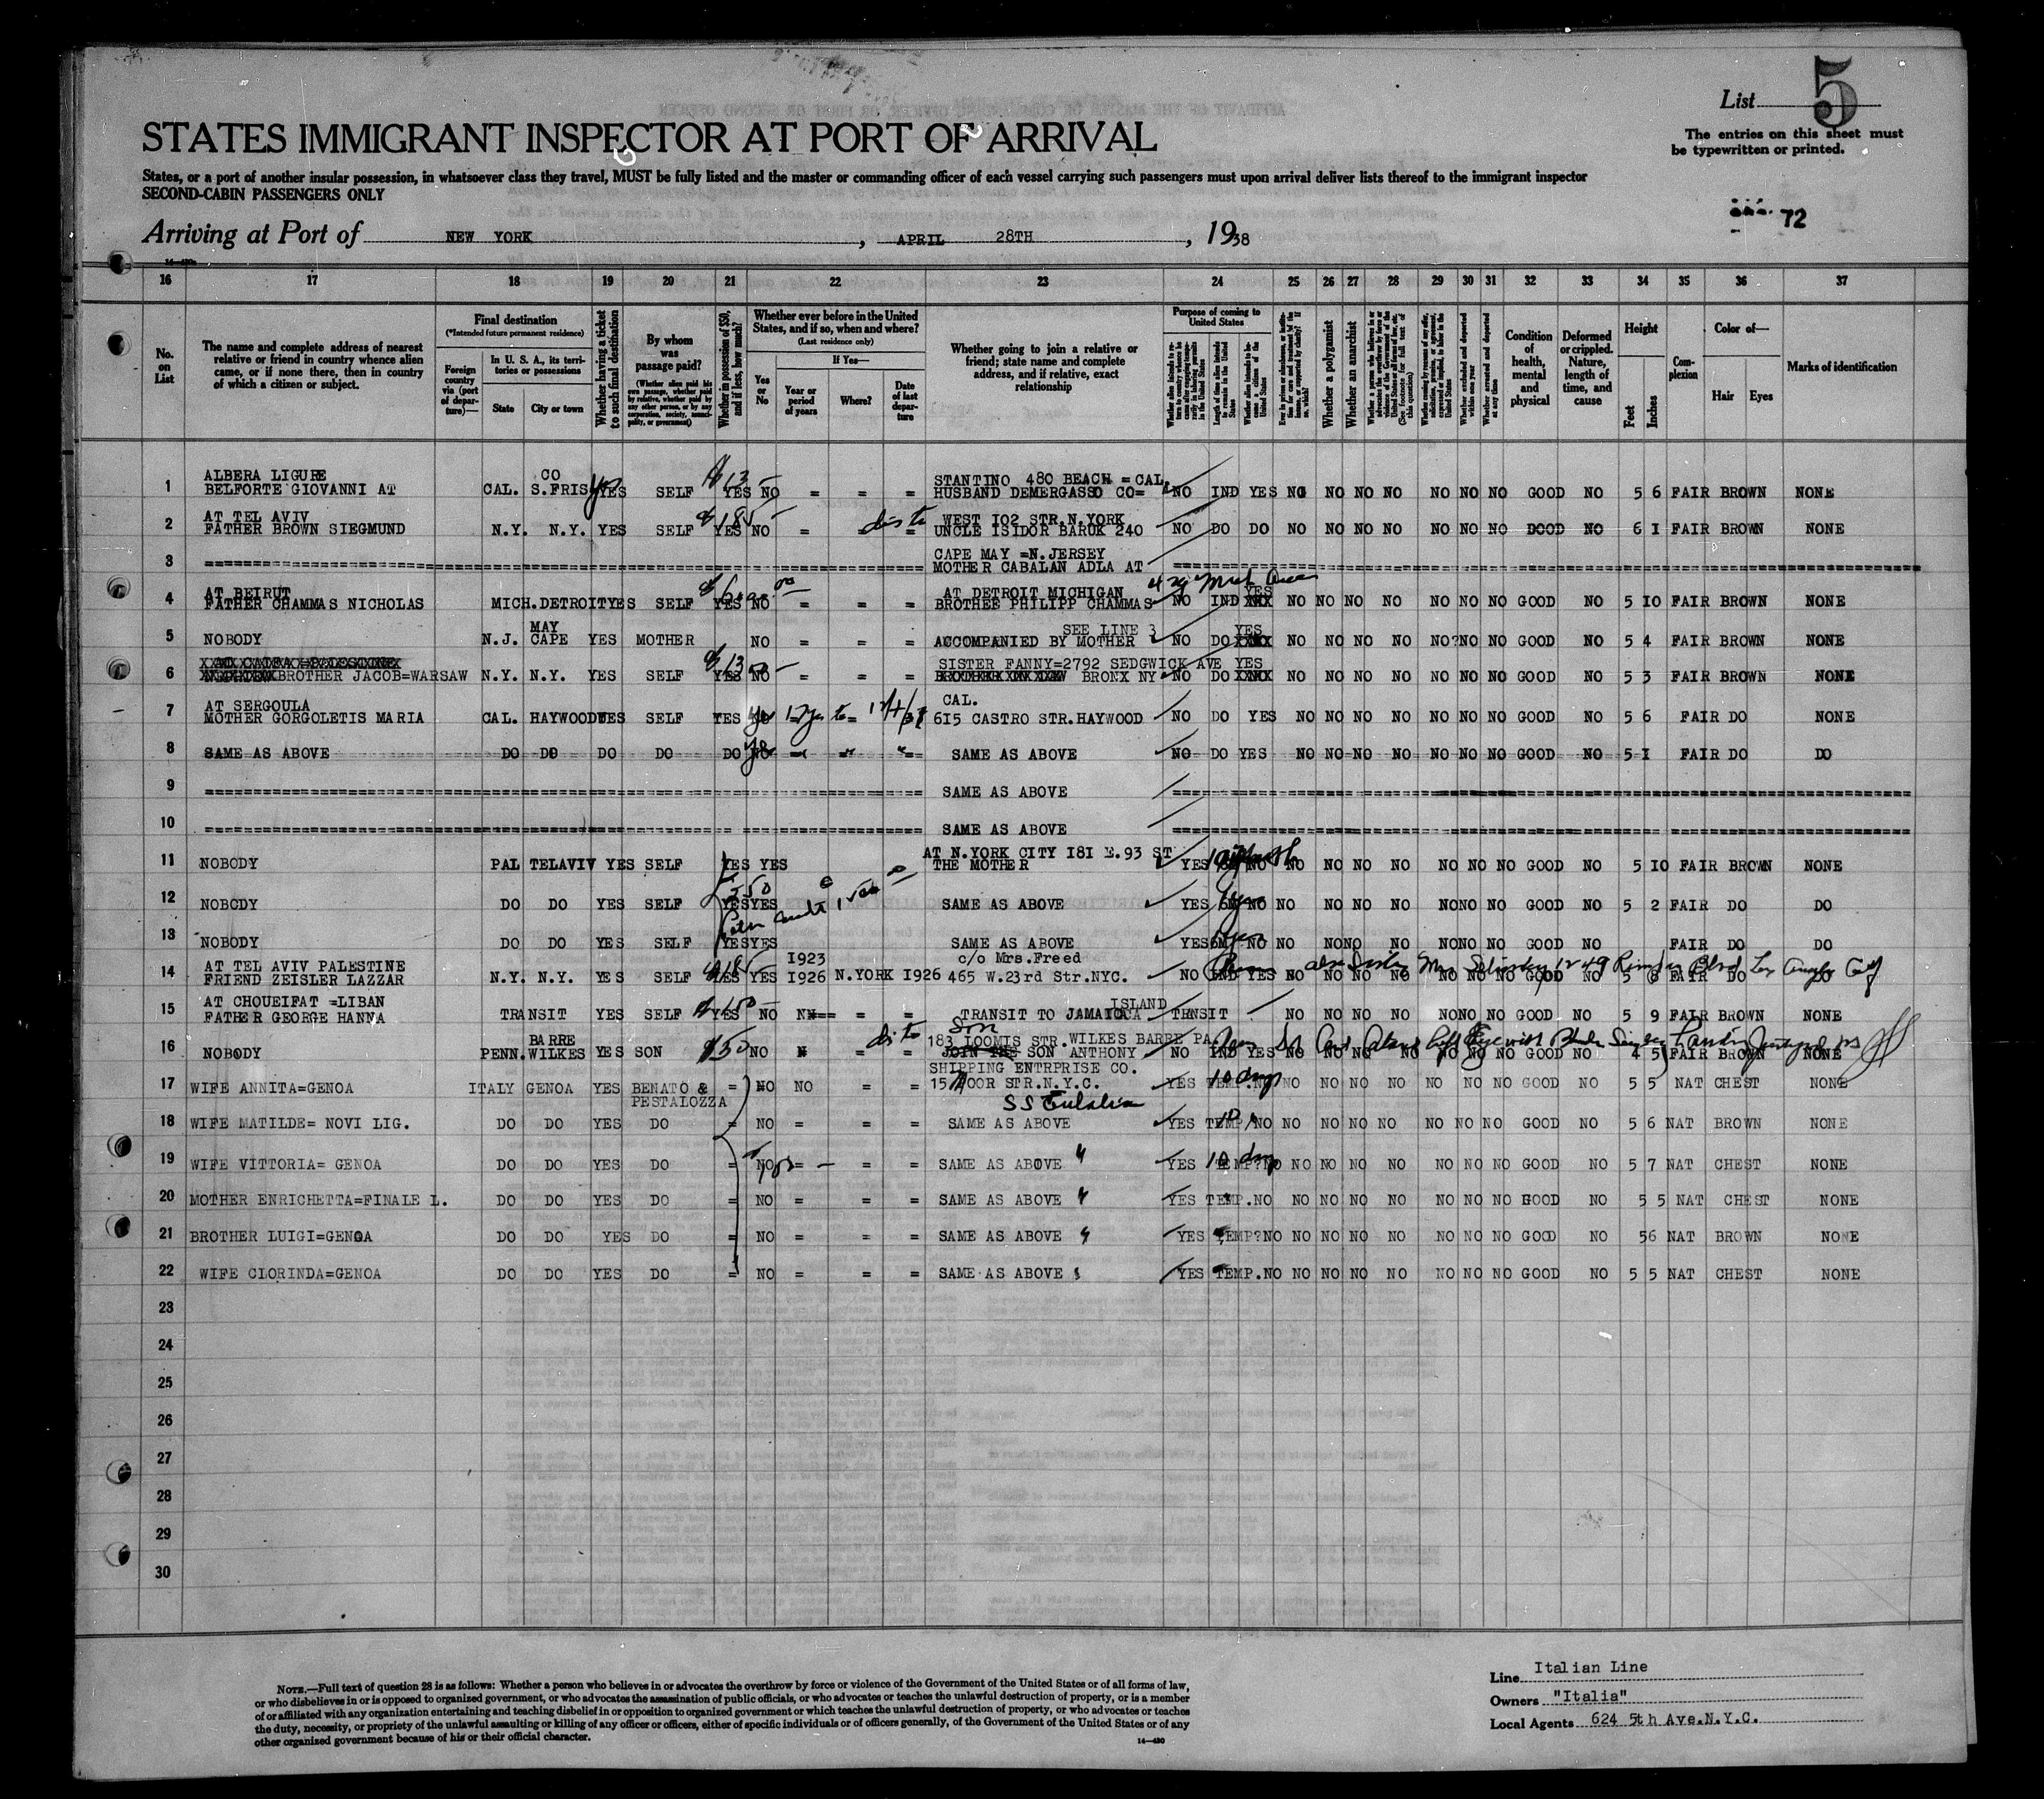 List 5
The entries on this sheet must
be typewritten or printed.
STATES IMMIGRANT INSPECTOR AT PORT OF ARRIVAL
States, or a port of another insular possession, in whatsoever class they travel, MUST be fully listed and the master or commanding officer of each vessel carrying such passengers must upon arrival deliver lists thereof to the immigrant inspector
SECOND-CABIN PASSENGERS ONLY
72
Arriving at Port of NEW YORK, APRIL 28TH, 1938
16 17 18 19 20 21 22 23 24 25 26 27 28 29 30 31 32 33 34 35 36 37
No. on List
The name and complete address of nearest relative or friend in country whence alien came, or if none there, then in country of which a citizen or subject.
Final destination
(*Intended future permanent residence)
Foreign country via (port of departure)—
In U. S. A., its territories or possessions
State
City or town
Whether having a ticket to such final destination
By whom was passage paid?
(Whether alien paid his own passage, whether paid by relative, whether paid by any other person, or by any corporation, society, municipality, or government)
Whether in possession of $50, and if less, how much?
Whether ever before in the United States, and if so, when and where?
(Last residence only)
Yes or No
If Yes—
Year or period of years
Where?
Date of last departure
Whether going to join a relative or friend; state name and complete address, and if relative, exact relationship
Purpose of coming to United States
Whether a polygamist
Whether an anarchist
Condition of health, mental and physical
Deformed or crippled. Nature, length of time, and cause
Height
Feet
Inches
Complexion
Color of—
Hair
Eyes
Marks of identification
ALBERA LIGURE CO STANTINO 480 BEACH = CAL.
1 BELFORTE GIOVANNI AT CAL. S.FRIS YES SELF YES NO = = = HUSBAND DEMERGASSO CO= NO IND YES NO NO NO NO NO NO NO GOOD NO 5 6 FAIR BROWN NONE
AT TEL AVIV WEST I02 STR.N.YORK
2 FATHER BROWN SIEGMUND N.Y. N.Y. YES SELF YES NO = = = UNCLE ISIDOR BARUK 240 NO DO DO NO NO NO NO NO NO NO DOOD NO 6 I FAIR BROWN NONE
CAPE MAY =N.JERSEY
3 MOTHER CABALAN ADLA AT
AT BEIRUT AT DETROIT MICHIGAN YES
4 FATHER CHAMMAS NICHOLAS MICH.DETROIT YES SELF YES NO = = = BROTHEE PHILIPP CHAMMAS NO IND XXX NO NO NO NO NO NO NO GOOD NO 5 IO FAIR BROWN NONE
MAY SEE LINE 3 YES
5 NOBODY N.J. CAPE YES MOTHER NO = = = ACCOMPANIED BY MOTHER NO DO XXXX NO NO NO NO NO?NO NO GOOD NO 5 4 FAIR BROWN NONE
SISTER FANNY=2792 SEDGWICK AVE YES
6 BROTHER JACOB=WARSAW N.Y. N.Y. YES SELF YES NO = = = BRONX NY NO DO XXXX NO NO NO NO NO NO NO GOOD NO 5 3 FAIR BROWN NONE
AT SERGOULA CAL.
7 MOTHER GORGOLETIS MARIA CAL. HAYWOOD YES SELF YES = 615 CASTRO STR.HAYWOOD NO DO YES NO NO NO NO NO NO NO GOOD NO 5 6 FAIR DO NONE
8 SAME AS ABOVE DO DO DO DO DO NO = = = SAME AS ABOVE NO DO YES NO NO NO NO NO NO NO GOOD NO 5 I FAIR DO DO
9 SAME AS ABOVE
10 SAME AS ABOVE
AT N.YORK CITY I8I E.93 ST
11 NOBODY PAL TELAVIV YES SELF YES YES THE MOTHER YES NO NO NO NO NO NO NO NO GOOD NO 5 IO FAIR BROWN NONE
12 NOBODY DO DO YES SELF YES YES SAME AS ABOVE YES NO NO NO NO NO NO NO NO GOOD NO 5 2 FAIR DO DO
13 NOBODY DO DO YES SELF YES YES SAME AS ABOVE YES NO NO NO NO NO NO NO NO GOOD NO FAIR DO DO
AT TEL AVIV PALESTINE I923 c/o Mrs.Freed
14 FRIEND ZEISLER LAZZAR N.Y. N.Y. YES SELF YES YES I926 N.YORK I926 465 W.23rd Str.NYC. NO IND YES NO NO NO NO NO NO NO GOOD NO 5 8 FAIR DO DO
AT CHOUEIFAT =LIBAN ISLAND
15 FATHER GEORGE HANNA TRANSIT YES SELF YES NO = = TRANSIT TO JAMAICA TRNSIT NO NO NO NO NO NO NO GOOD NO 5 9 FAIR BROWN NONE
BARRE son 183 LOOMIS STR. WILKES BARRE PA
16 NOBODY PENN. WILKES YES SON $50 NO = = JOIN THE SON ANTHONY NO IND YES NO NO NO NO NO NO NO GOOD NO 4 5 FAIR BROWN NONE
SHIPPING ENTRPRISE CO.
17 WIFE ANNITA=GENOA ITALY GENOA YES BENATO & PESTALOZZA = NO NO = = 15 MOOR STR.N.Y.C. YES TEMP. 10 days NO NO NO NO NO NO NO GOOD NO 5 5 NAT CHEST NONE
SS Eulalia
18 WIFE MATILDE= NOVI LIG. DO DO YES DO = NO = = = SAME AS ABOVE YES TEMP NO NO NO NO NO NO NO NO GOOD NO 5 6 NAT BROWN NONE
19 WIFE VITTORIA= GENOA DO DO YES DO = NO = = = SAME AS ABOVE YES TEMP?NO 10 days NO NO NO NO NO NO NO GOOD NO 5 7 NAT CHEST NONE
20 MOTHER ENRICHETTA=FINALE L. DO DO YES DO = NO = = = SAME AS ABOVE YES TEMP.NO NO NO NO NO NO NO NO GOOD NO 5 5 NAT CHEST NONE
21 BROTHER LUIGI=GENOA DO DO YES DO = NO = = = SAME AS ABOVE YES TEMP?NO NO NO NO NO NO NO NO GOOD NO 56 NAT BROWN NONE
22 WIFE CLORINDA=GENOA DO DO YES DO = NO = = = SAME AS ABOVE YES TEMP.NO NO NO NO NO NO NO NO GOOD NO 5 5 NAT CHEST NONE
23
24
25
26
27
28
29
30
NOTE.—Full text of question 28 is as follows: Whether a person who believes in or advocates the overthrow by force or violence of the Government of the United States or of all forms of law,
or who disbelieves in or is opposed to organized government, or who advocates the assassination of public officials, or who advocates or teaches the unlawful destruction of property, or is a member
of or affiliated with any organization entertaining and teaching disbelief in or opposition to organized government or which teaches the unlawful destruction of property, or who advocates or teaches
the duty, necessity, or propriety of the unlawful assaulting or killing of any officer or officers, either of specific individuals or of officers generally, of the Government of the United States or of any
other organized government because of his or their official character.
14—430
Line Italian Line
Owners "Italia"
Local Agents 624 5th Ave.N.Y.C.